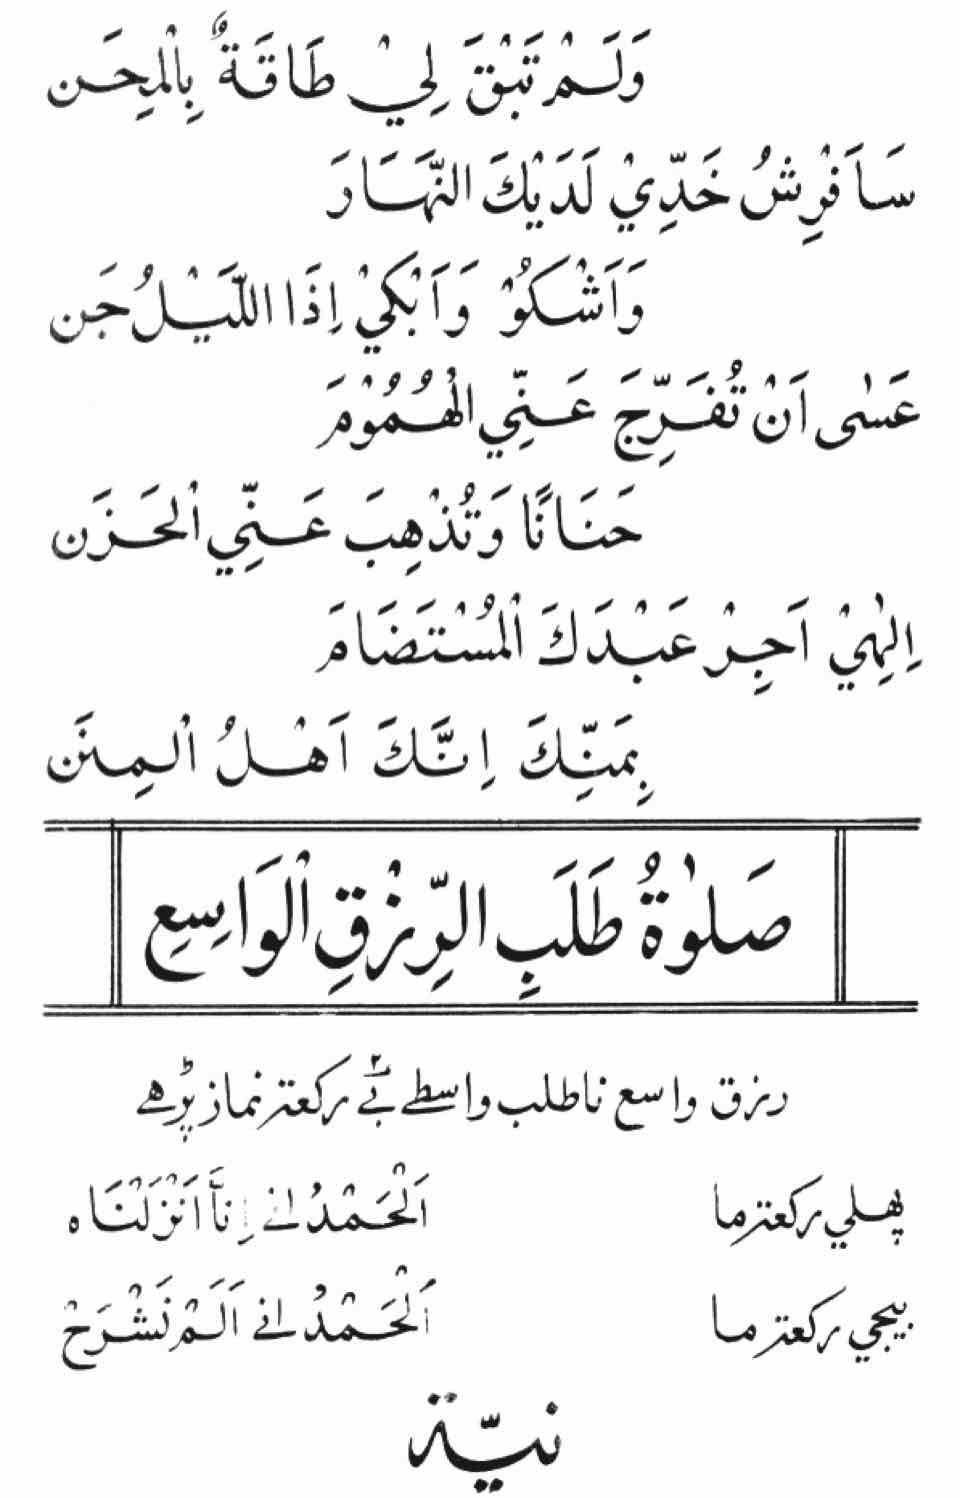 وَلَـمْ تَبْقَ لِيْ طَاقَةٌ بِالْمِحَـن
سَـاَفْرِشُ خَدِّيْ لَدَيْكَ النَّهَـارَ
وَاَشْكُوْ وَاَبْكِيْ اِذَا اللَّيْـلُ جَن
عَسٰى اَنْ تُفَـرِّجَ عَـنِّي الْهُـمُوْمَ
حَنَانًا وَتُذْهِبَ عَـنِّي الْحَـزَن
اِلٰهِيْ اَجِـرْ عَبْـدَكَ الْمُسْتَضَامَ
بِمَنِّكَ اِنَّكَ اَهْـلُ الْـمِنَن
صَـلٰوةُ طَلَبِ الرِّزْقِ الْوَاسِعِ
رزق واسع نا طلب واسطے بْے ركعة نماز پڑهے
پهـلي ركعة ما
اَلْحَمْدُ انے اِنَّا اَنْزَلْنَاه
بيجي ركعة مـا
اَلْحَـمْدُ انے اَلَـمْ نَشْـرَحْ
نيّـة